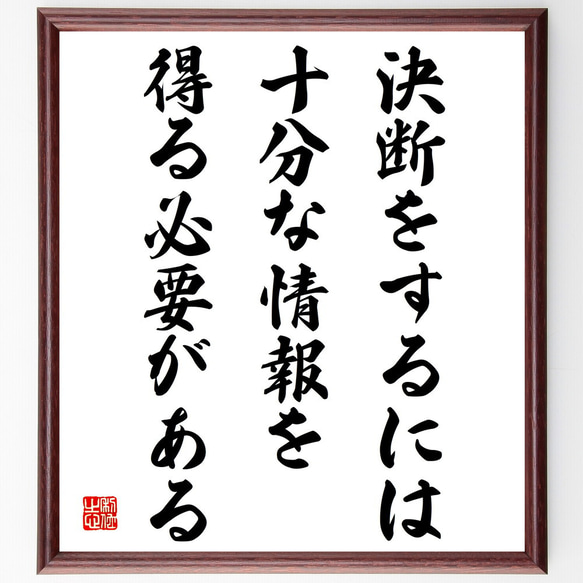 決断をするには
十分な情報を
得る必要がある